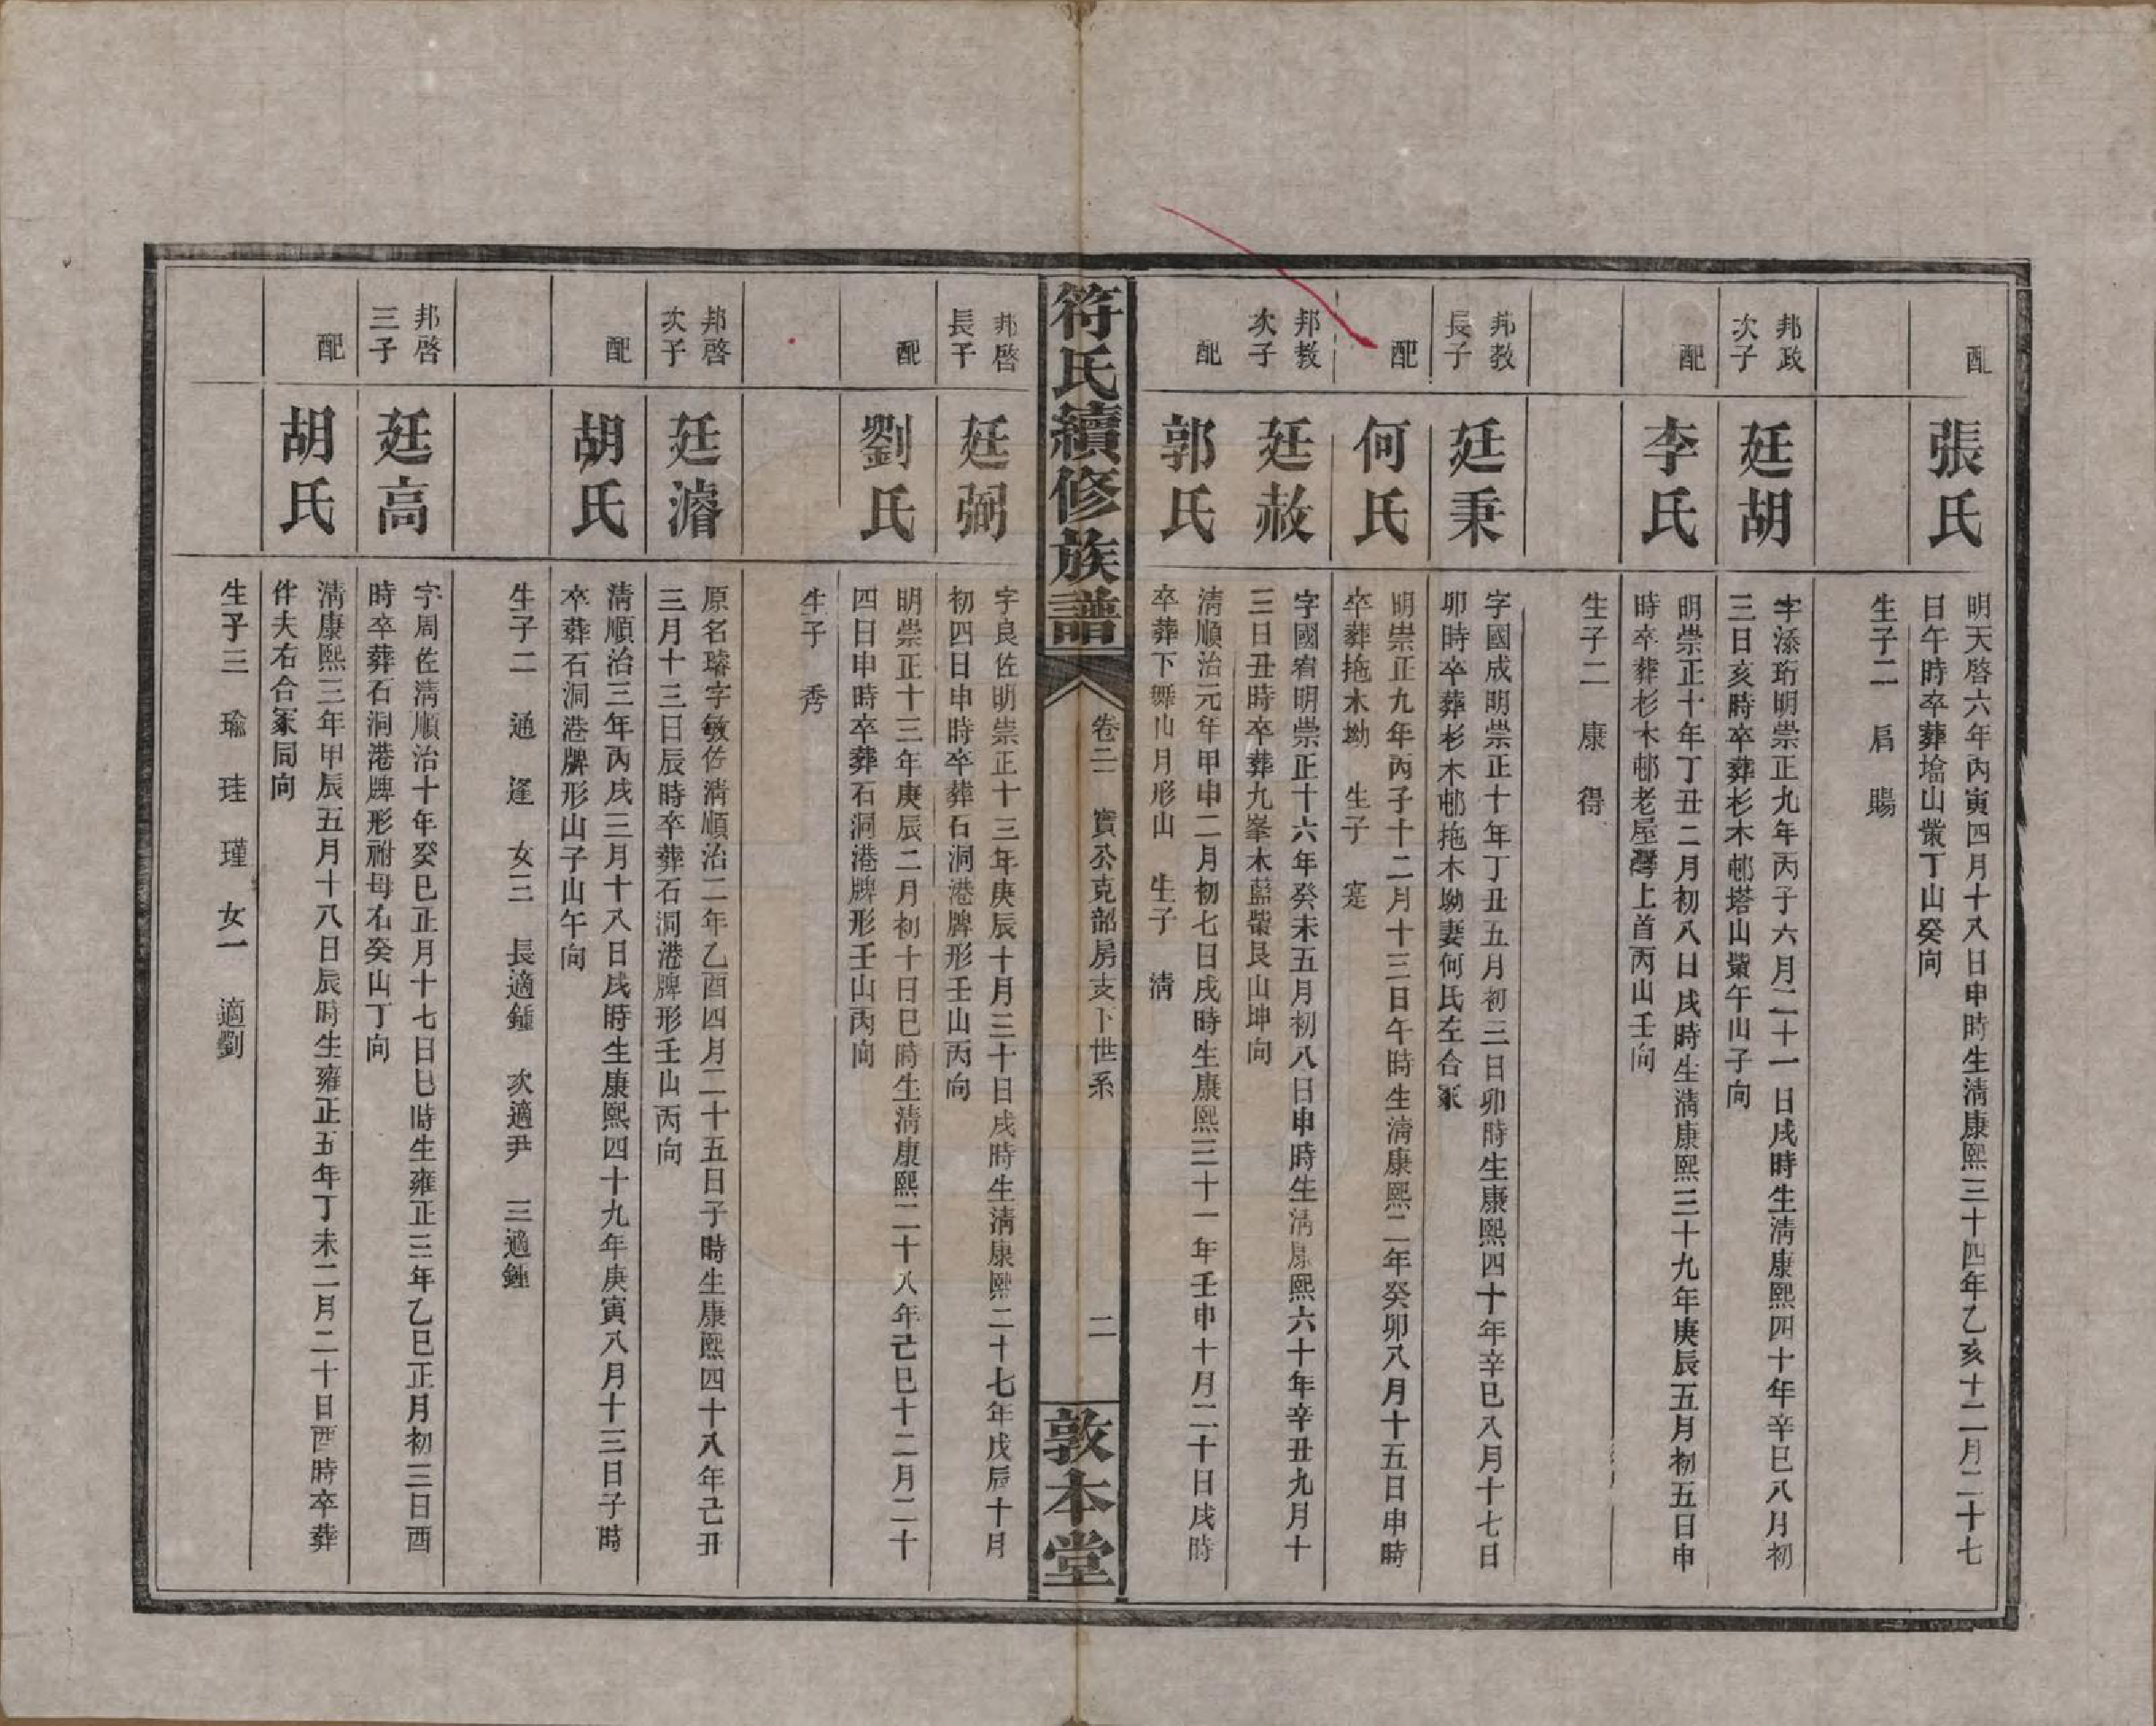 配
張氏
明天啓六年丙寅四月十八日申時生淸康熙三十四年乙亥十二月二十七
日午時卒葬墖山蕻丁山癸向
生子二　启　賜
邦政
次子
廷胡
字添珩明崇正九年丙子六月二十一日戌時生淸康熙四十年辛巳八月初
三日亥時卒葬杉木邨塔山蕻午山子向
配
李氏
明崇正十年丁丑二月初八日戌時生淸康熙三十九年庚辰五月初五日申
時卒葬杉木邨老屋灣上首丙山壬向
生子二　康　得
邦教
長子
廷秉
字國成明崇正十年丁丑五月初三日卯時生康熙四十年辛巳八月十七日
卯時卒葬杉木邨拖木坳妻何氏左合冢
配
何氏
明崇正九年丙子十二月十三日午時生淸康熙二年癸卯八月十五日申時
卒葬拖木坳　生子　寔
邦教
次子
廷赦
字國宥明崇正十六年癸未五月初八日申時生淸康熙六十年辛丑九月十
三日丑時卒葬九峯木藍蕻艮山坤向
配
郭氏
淸順治元年甲申二月初七日戌時生康熙三十一年壬申十月二十日戌時
卒葬下舞山月形山　生子　淸
符氏續修族譜
卷二　寶公克韶房支下世系
二
敦本堂
邦啓
長子
廷弼
字良佐明崇正十三年庚辰十月三十日戌時生淸康熙二十七年戊辰十月
初四日申時卒葬石洞港牌形壬山丙向
配
劉氏
明崇正十三年庚辰二月初十日巳時生淸康熙二十八年己巳十二月二十
四日申時卒葬石洞港牌形壬山丙向
生子　秀
邦啓
次子
廷濬
原名璿字敏佐淸順治二年乙酉四月二十五日子時生康熙四十八年己丑
三月十三日辰時卒葬石洞港牌形壬山丙向
配
胡氏
淸順治三年丙戌三月十八日戌時生康熙四十九年庚寅八月十三日子時
卒葬石洞港牌形山子山午向
生子二　通　逢　女三　長適鍾　次適尹　三適鍾
邦啓
三子
廷高
字周佐淸順治十年癸巳正月十七日巳時生雍正三年乙巳正月初三日酉
時卒葬石洞港牌形祔母右癸山丁向
配
胡氏
淸康熙三年甲辰五月十八日辰時生雍正五年丁未二月二十日酉時卒葬
件夫右合冢同向
生子三　瑜　珪　瑾　女一　適劉